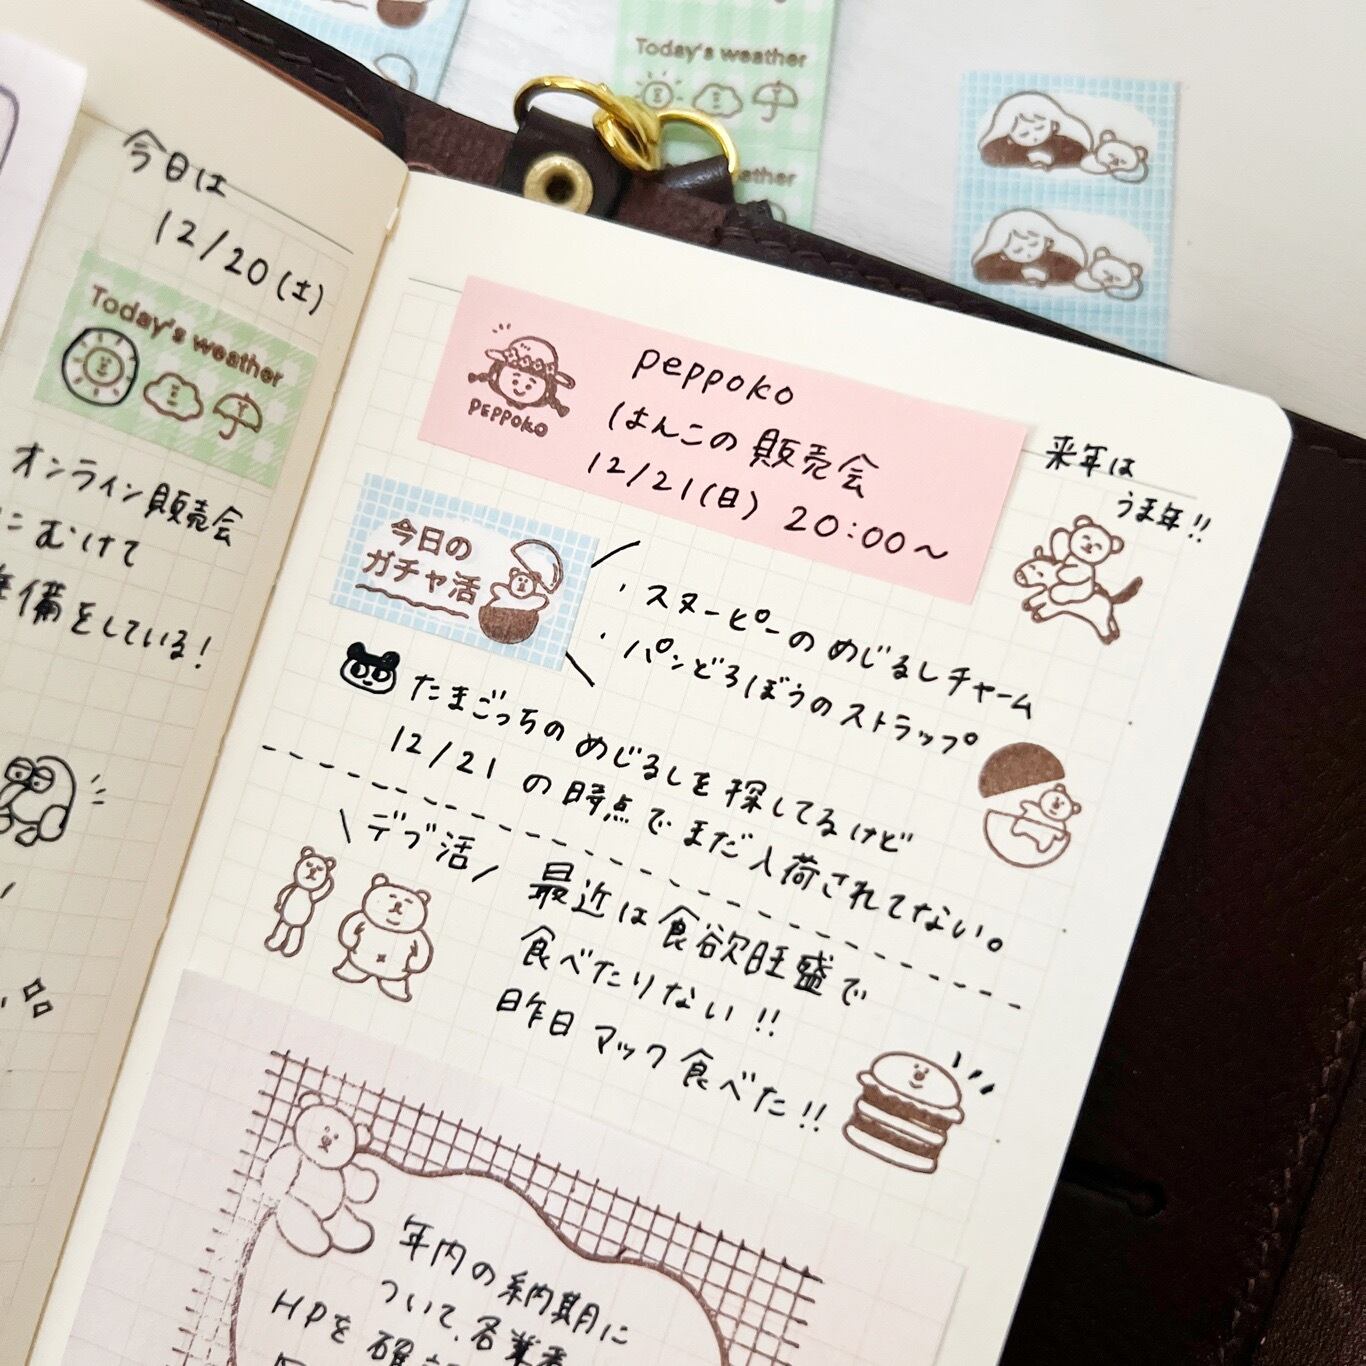 Today's weather
今日は
12/20(土)
Today's weather
オンライン販売会
にむけて
準備をしている!
PEPPOKO
peppoko
はんこの販売会
12/21(日) 20:00〜
来年は
うま年!!
今日の
ガチャ活
・スヌーピーのめじるしチャーム
・パンどろぼうのストラップ
たまごっちのめじるしを探してるけど
12/21の時点でまだ入荷されてない。
\デブ活/
最近は食欲旺盛で
食べたりない!!
昨日マック食べた!!
年内の納期に
ついて、各業者
HPを確